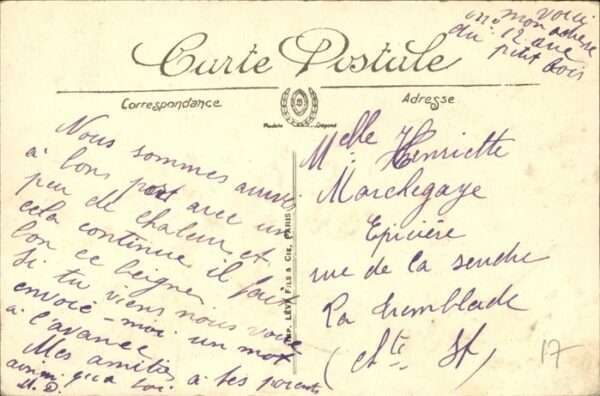 voici
mon adresse
no 12 rue
du petit bois
Carte Postale
Correspondance
Adresse
Nous sommes arrivés
à bons port avec un
peu de chaleur et
cela continue il fait
bon ce beigner
Si tu viens nous voir
envoie-moi un mot
à l'avance
Mes amitiés
ainsi qua toi a tes parents
M. D.
IMP. LÉVY FILS & Cie, PARIS
Melle Henriette
Marchegaye
Epicière
rue de la
La Tremblade
(Cte If)
17